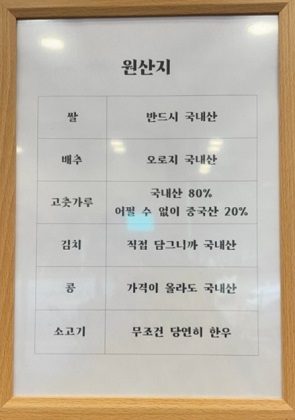 원산지
쌀 반드시 국내산
배추 오로지 국내산
고춧가루 국내산 80%
어쩔 수 없이 중국산 20%
김치 직접 담그니까 국내산
콩 가격이 올라도 국내산
소고기 무조건 당연히 한우